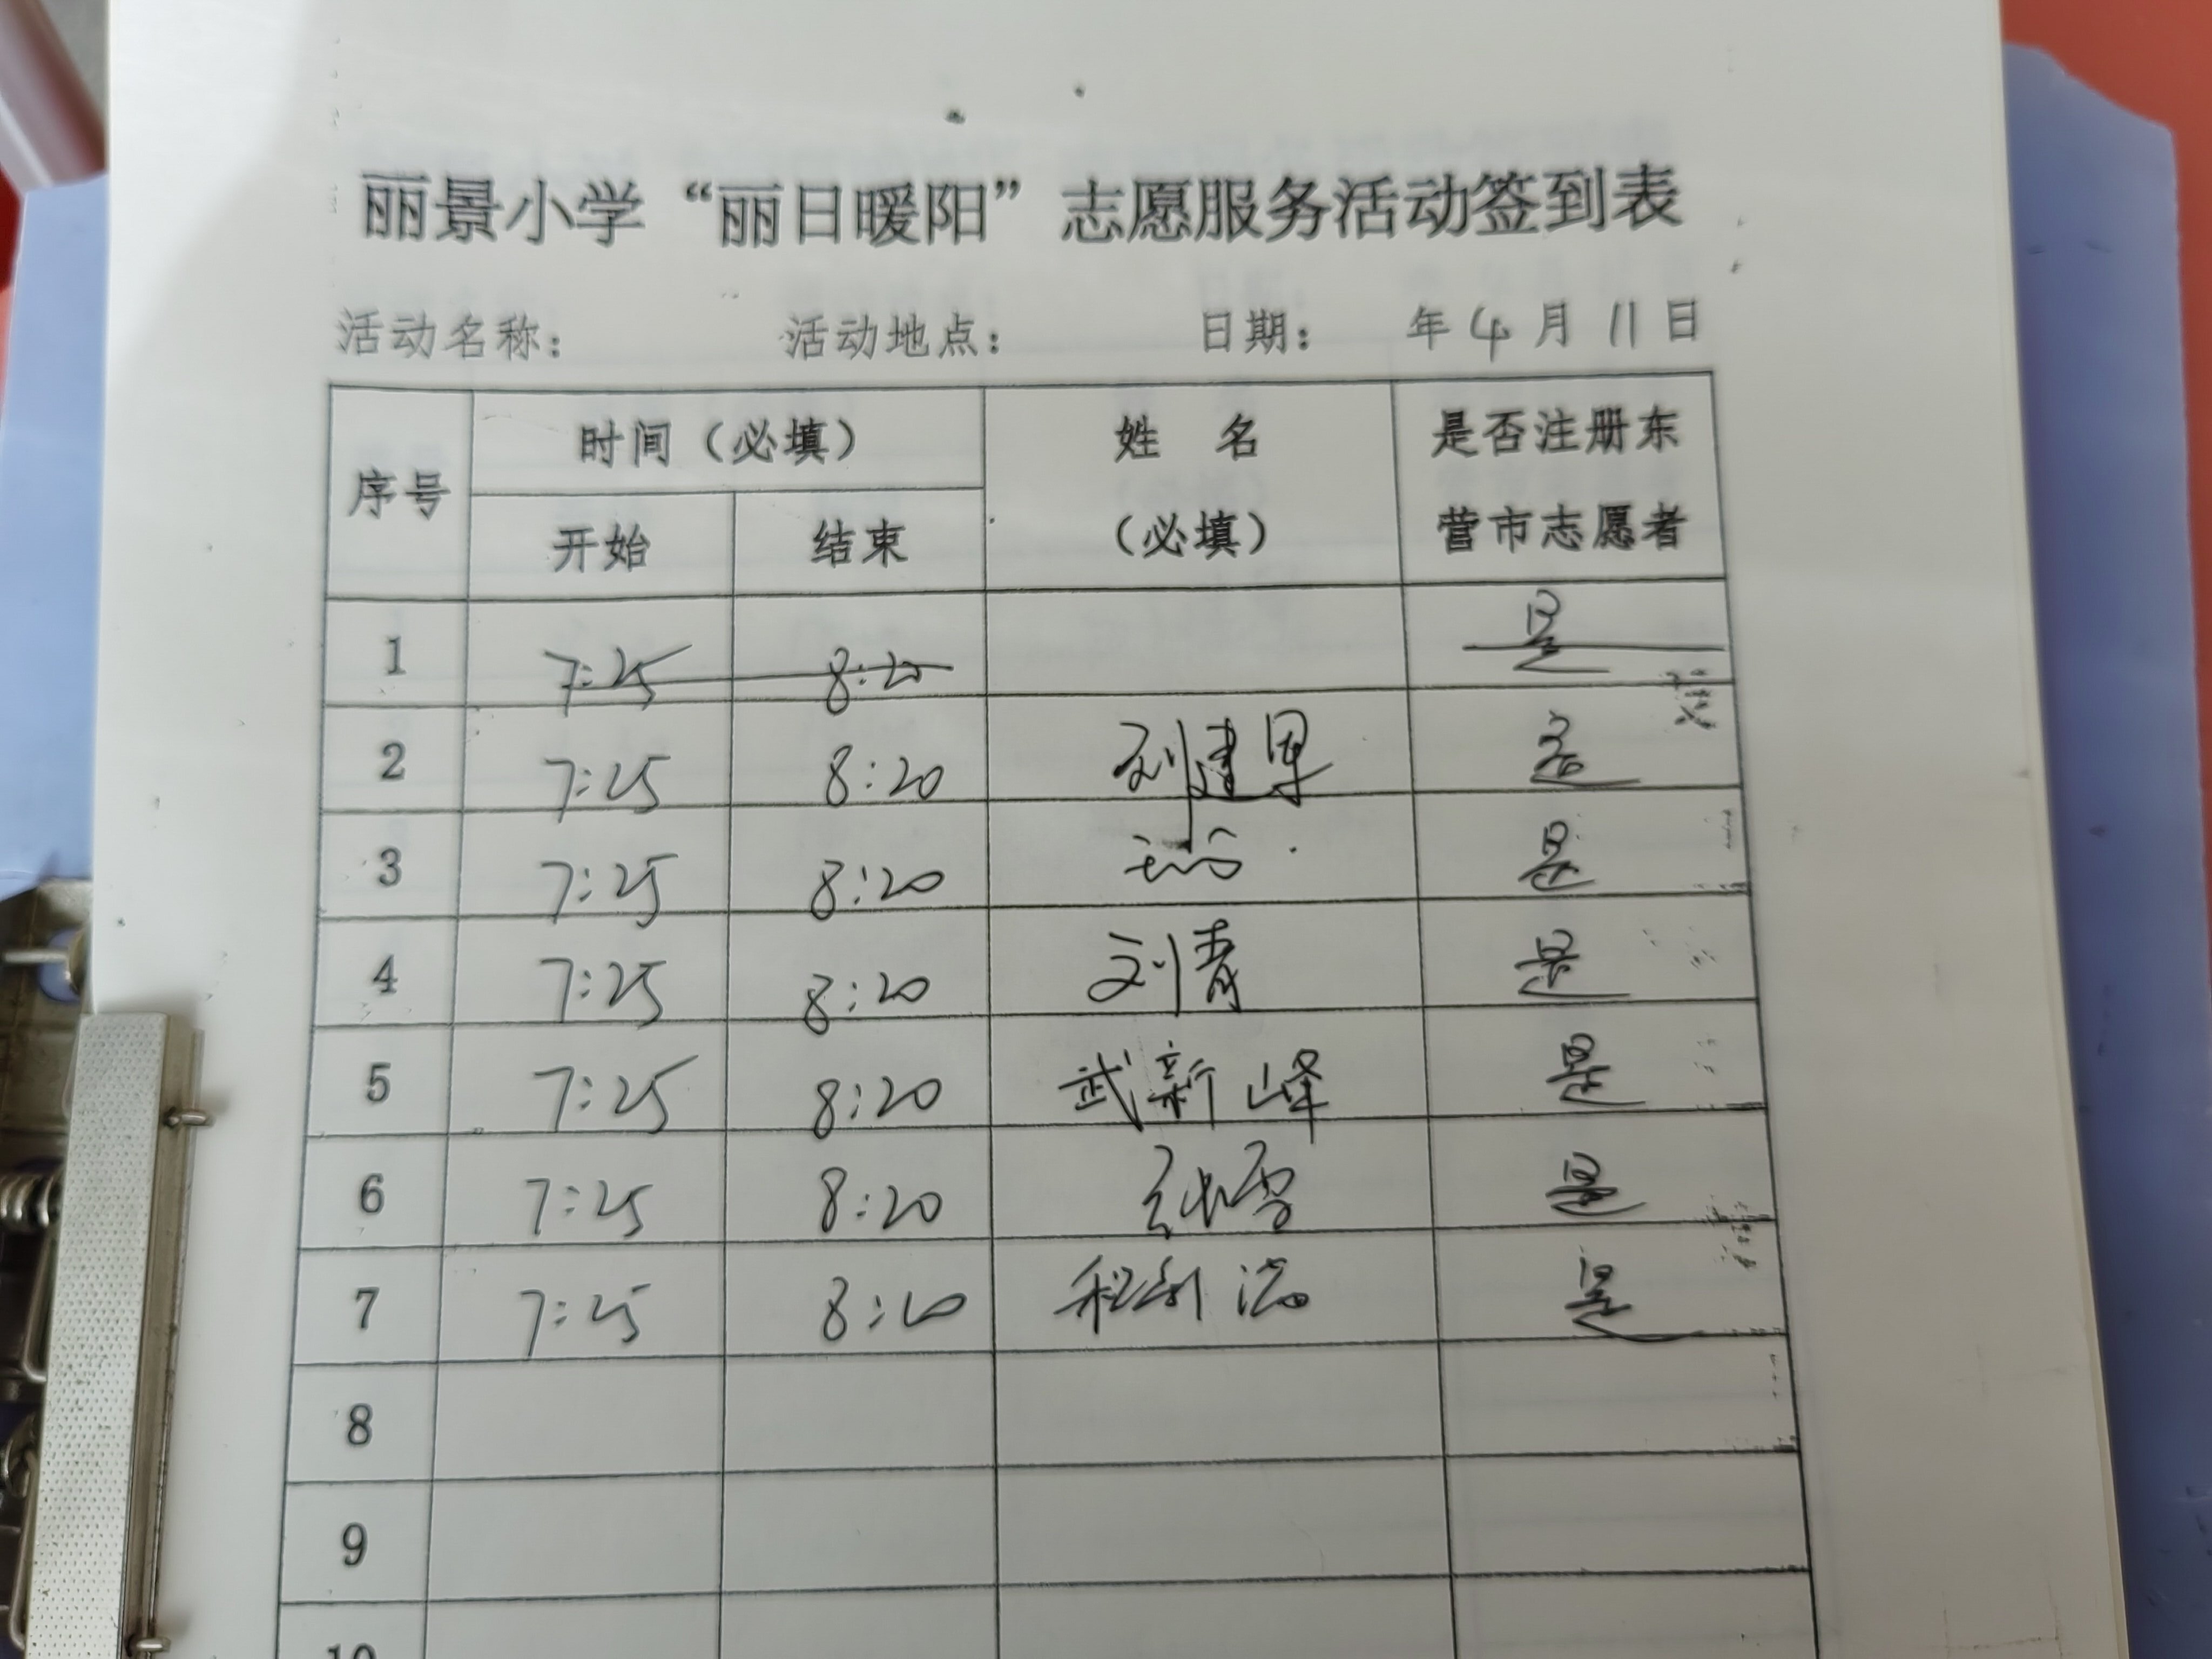 丽景小学“丽日暖阳”志愿服务活动签到表
活动名称： 活动地点： 日期： 年4月11日
序号 时间（必填） 姓名（必填） 是否注册东营市志愿者
开始 结束
1 7:25 8:20 是
2 7:25 8:20 刘建军 是
3 7:25 8:20 是
4 7:25 8:20 刘青 是
5 7:25 8:20 武新峰 是
6 7:25 8:20 张雪 是
7 7:25 8:20 是
8
9
10